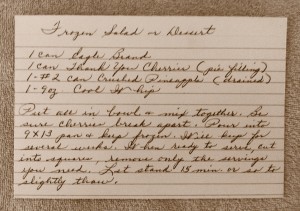 Frozen Salad or Dessert
1 can Eagle Brand
1 can Thank You Cherries (pie filling)
1 - #2 can Crushed Pineapple (drained)
1 - 9oz Cool Whip
Put all in bowl & mix together. Be
sure cherries break apart. Pour into
9X13 pan & keep frozen. Will keep for
several weeks. When ready to serve, cut
into squares, remove only the servings
you need. Let stand 15 min or so to
slightly thaw.